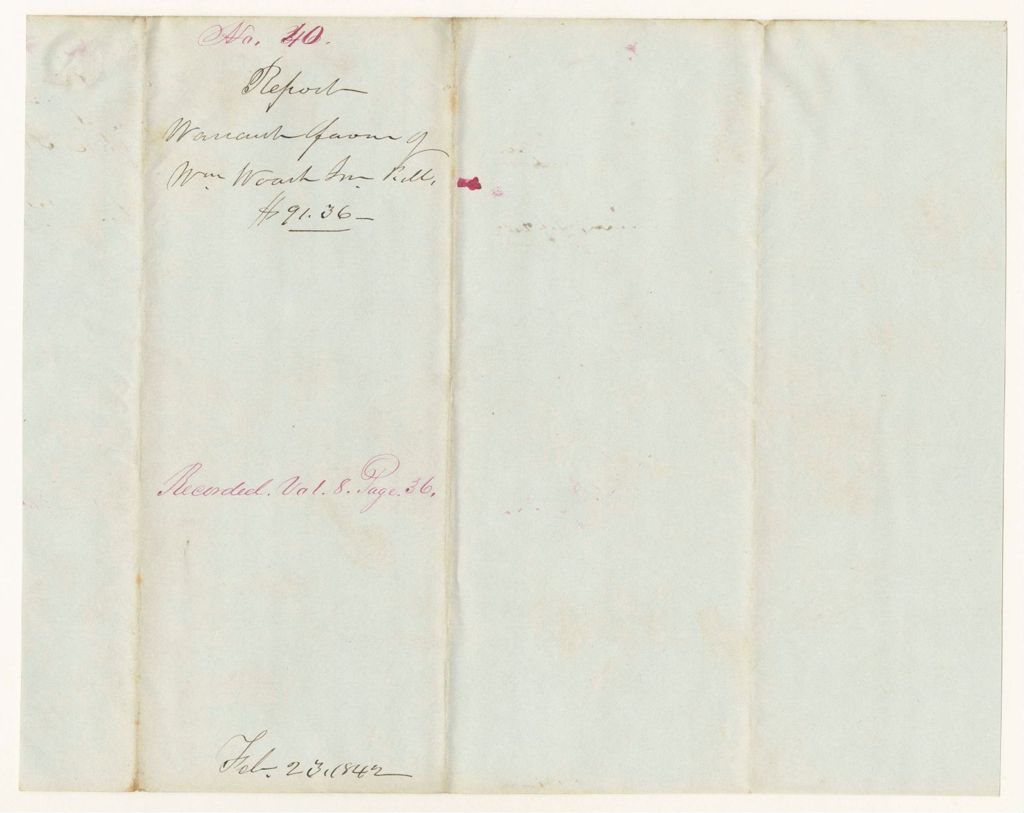 No. 40.
Report
Warrant favor of
Wm.
$91.36
Recorded. Vol. 8. Page. 36.
Feb. 23. 1842